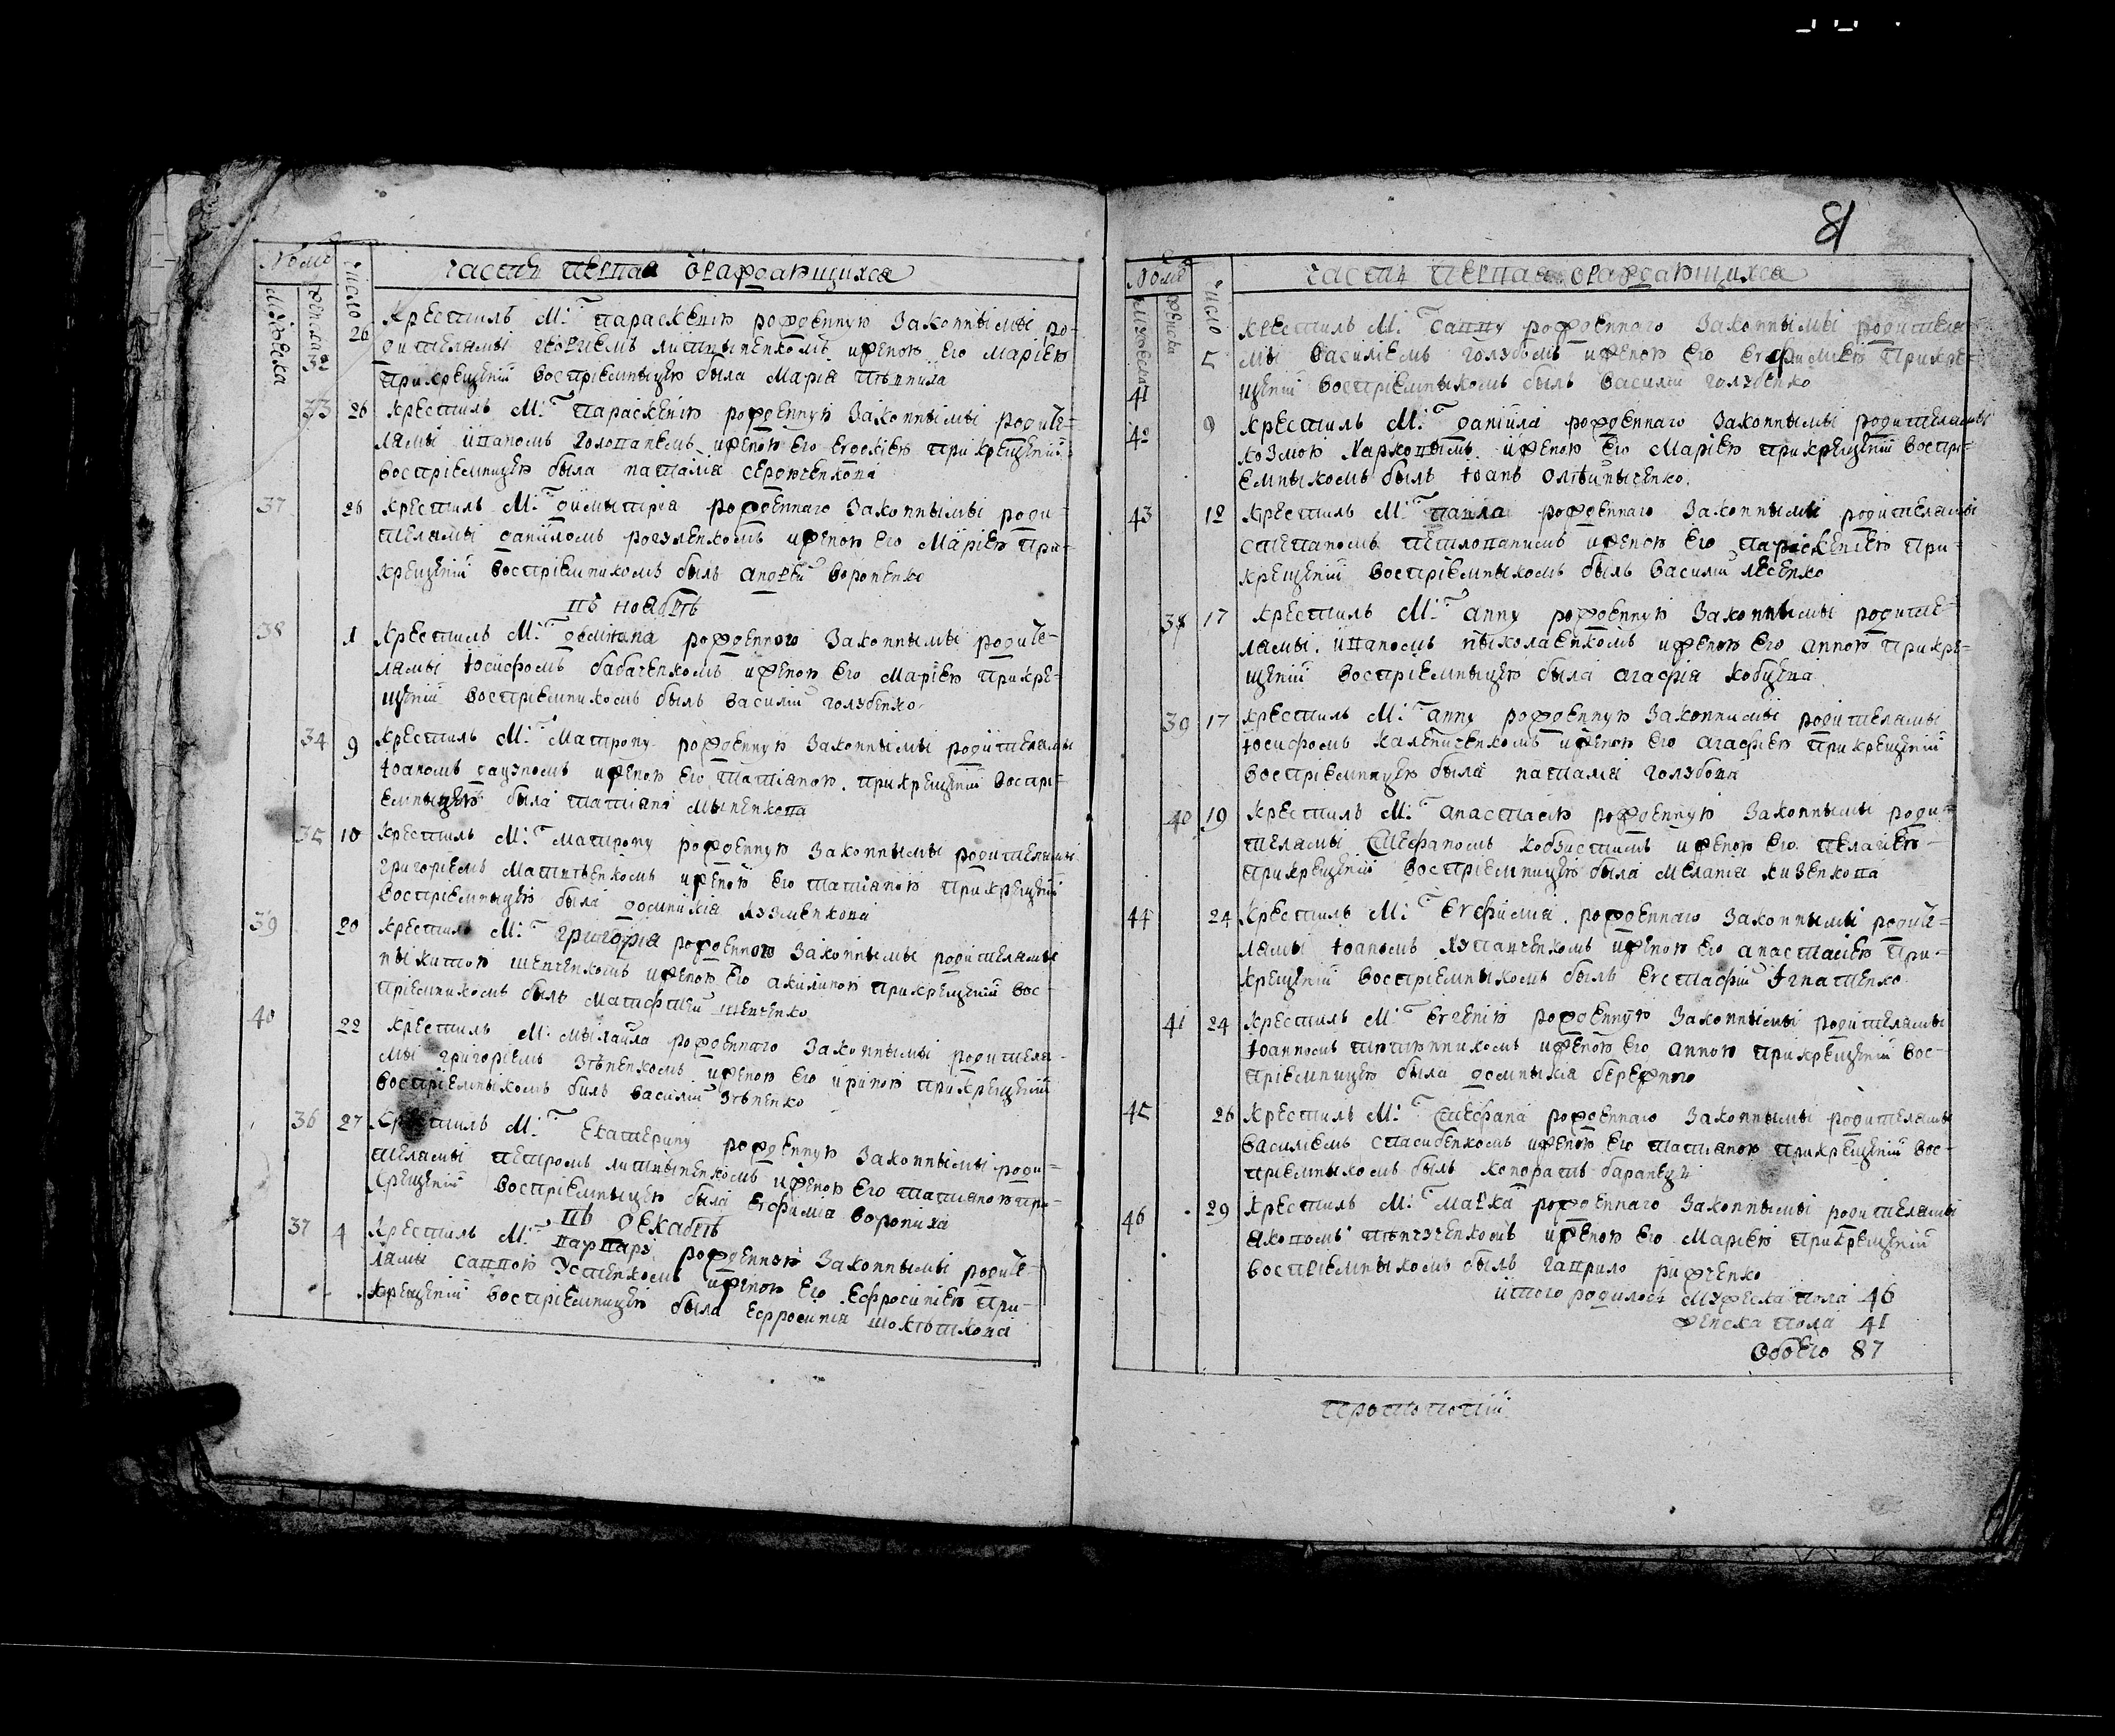 81
Номе
мужеска
женска
число
часть первая ѡраждающихся
32
26
Крестилъ М: Т параскевию рожденную законнымы ро-
дителямы георгіемъ литвыненкомъ и женою его маріею
при крещеніи воспріемныцею была Марія пѣвнила
33 26 Крестилъ М: Т параскевію рожденную законнымы родите-
лямы иваномъ голованемъ и женою его евдокіею при крещеніи
воспріемницею была наталія сердюченкова
37 26 Крестилъ М: Т димытрія рожденнаго законнымы роди-
телямы даніиломъ рогуленкомъ и женою его Маріею при-
крещеніи воспріемникомъ былъ андрей вороненко
въ ноябрѣ
38 1 Крестилъ М: Т деміяна рожденного законнымы родите-
лямы іосифомъ бабаченкомъ и женою его Маріею при кре-
щеніи воспріемникомъ былъ василій голубенко
34 9 Крестилъ М: Т Матрону рожденную законнымы родителямы
іоаномъ гауномъ и женою его татіаною при крещеніи воспрі-
емныцею была татіана мыненкова
35 10 Крестилъ М: Т матрону рожденную законнымы родителямы
григоріемъ Матвѣенкомъ и женою его татіаною при крещеніи
воспріемныцею была домникія кузменкова
39 20 Крестилъ М: Т григорія рожденного законнымы родителямы
ныкитою шевченкомъ и женою его акилиною при крещеніи вос-
пріемникомъ былъ матфтей шевченко
40 22 Крестилъ М: мыхаила рожденнаго законнымы родителя-
мы григоріемъ зѣненкомъ и женою его ириною при крещеніи
воспріемныкомъ былъ василій зѣненко
36 27 Крестилъ М: Т Екатерину рожденную законнымы роди-
телямы петромъ литвыненкомъ и женою его татіаною при-
крещеніи воспріемныцею была евфимія воропиха
въ декабрѣ
37 4 Крестилъ М: Т варвару рожденную законнымы родите-
лямы саввою устенкомъ и женою его ефросиніею при-
крещеніи воспріемницею была ефросинія шокоткова
Номе
мужеска
женска
число
часть первая ѡраждающихся
41 5 Крестилъ М: Т савву рожденнаго законнымы родителя
мы василіемъ голубомъ и женою его евфиміею при кре-
щеніи воспріемныкомъ былъ василій голубенко
42 9 Крестилъ М: Т даніила рожденнаго законнымы родителямы
козмою харковымъ и женою его Маріею при крещеніи воспри-
емныкомъ былъ іоанъ олѣйныченко
43 12 Крестилъ М: Т павла рожденнаго законнымы родителямы
степаномъ петлованимъ и женою его параскевіею при-
крещеніи воспріемныкомъ былъ василій лесенко
38 17 Крестилъ М: Т анну рожденную законнымы родите-
лямы иваномъ ныколаенкомъ и женою его анною при кре-
щеніи воспріемныцею была агафія кобцева
39 17 Крестилъ М: Т анну рожденную законнимы родителямы
іосифомъ каленыченкомъ и женою его агафіею при крещеніи
воспріемницею была наталія голубова
40 19 Крестилъ М: Т анастасію рожденную законнымы роди-
телямы стефаномъ кобзистимъ и женою его пелагіею
при крещеніи воспріемницею была меланія кизенкова
44 24 Крестилъ М: Т евфимія рожденнаго законнымы родите-
лямы іоаномъ лупанченкомъ и женою его анастасіею при-
крещеніи воспріемныкомъ былъ евстафій ігнатенко
41 24 Крестилъ М: Т евгенію рожденную законнымы родителямы
іоанномъ тютюнникомъ и женою его анною при крещеніи вос-
пріемницею была домныкія бережного
45 26 Крестилъ М: Т стефана рожденнаго законнымы родителямы
василіемъ спасибенкомъ и женою его татіаною при крещеніи вос-
пріемныкомъ былъ конфратъ баранецъ
46 29 Крестилъ М: Т марка рожденнаго законнымы родителямы
яковомъ пѣнчученкомъ и женою его Маріею при крещеніи
воспріемныкомъ былъ гаврило рижченко
итого родилось мужеска пола 46
женска пола 41
обоего 87
протопопій